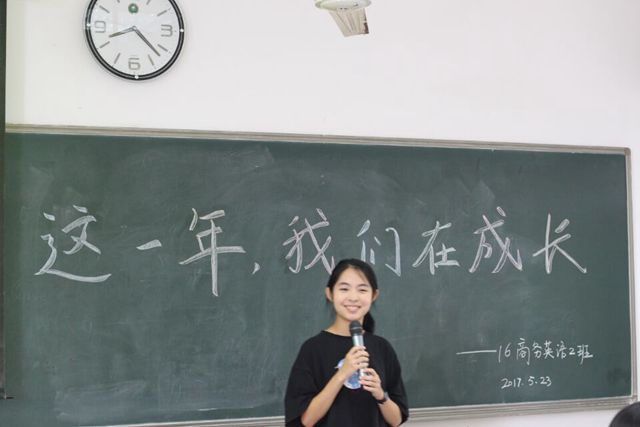 这一年，我们在成长
——16商务英语2班
2017.5.23